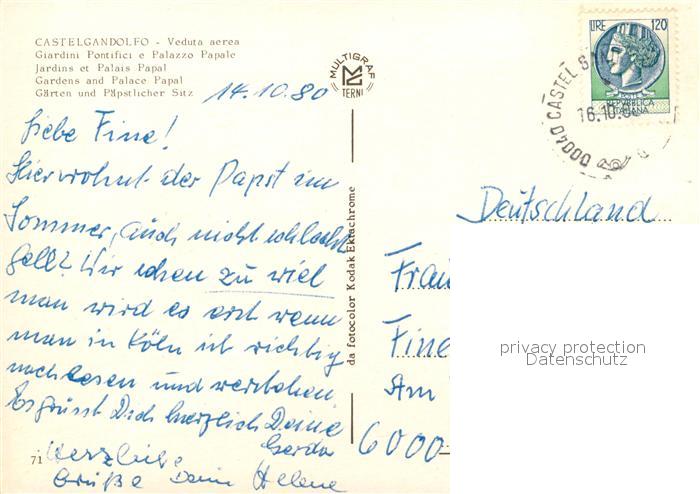 CASTELGANDOLFO - Veduta aerea
Giardini Pontifici e Palazzo Papale
Jardins et Palais Papal
Gardens and Palace Papal
Gärten und Päpstlicher Sitz
MULTIGRAF
TERNI
LIRE 120
REPVBBLICA
ITALIANA
00040 CASTEL G
16.10.80
14.10.80
Liebe Fine!
Hier wohnt der Papst im
Sommer, auch nicht schlecht
gell? Wir sehen zu viel
man wird es erst wenn
man in Köln ist richtig
nachlesen und verstehen
Es grüsst Dich herzlich Deine
Gerda
Herzliche
Grüße Deine Helene
71
da fotocolor Kodak Ektachrome
Deutschland
Frau
Fine
Am
6000
privacy protection
Datenschutz